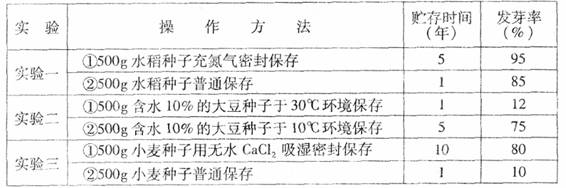 实 验 操 作 方 法 贮存时间(年) 发芽率(%)
实验一 ①500g 水稻种子充氮气密封保存 5 95
②500g 水稻种子普通保存 1 85
实验二 ①500g 含水 10%的大豆种子于 30℃环境保存 1 12
②500g 含水 10%的大豆种子于 10℃环境保存 5 75
实验三 ①500g 小麦种子用无水 CaCl₂ 吸湿密封保存 10 80
②500g 小麦种子普通保存 1 10